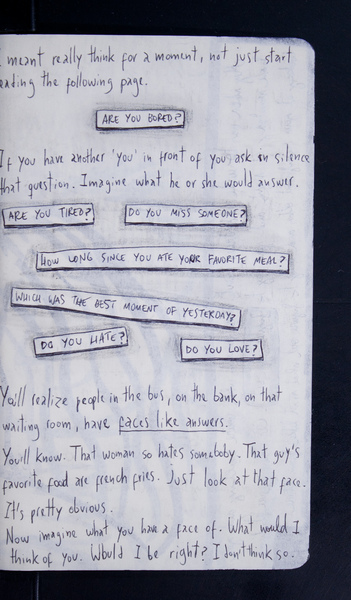 I meant really think for a moment, not just start
eading the following page.
ARE YOU BORED?
If you have another 'you' in front of you ask in silence
that question. Imagine what he or she would answer.
ARE YOU TIRED? DO YOU MISS SOMEONE?
HOW LONG SINCE YOU ATE YOUR FAVORITE MEAL?
WHICH WAS THE BEST MOMENT OF YESTERDAY?
DO YOU HATE? DO YOU LOVE?
You'll realize people in the bus, on the bank, on that
waiting room, have faces like answers.
You'll know. That woman so hates somebody. That guy's
favorite food are french fries. Just look at that face.
It's pretty obvious.
Now imagine what you have a face of. What would I
think of you. Would I be right? I don't think so.